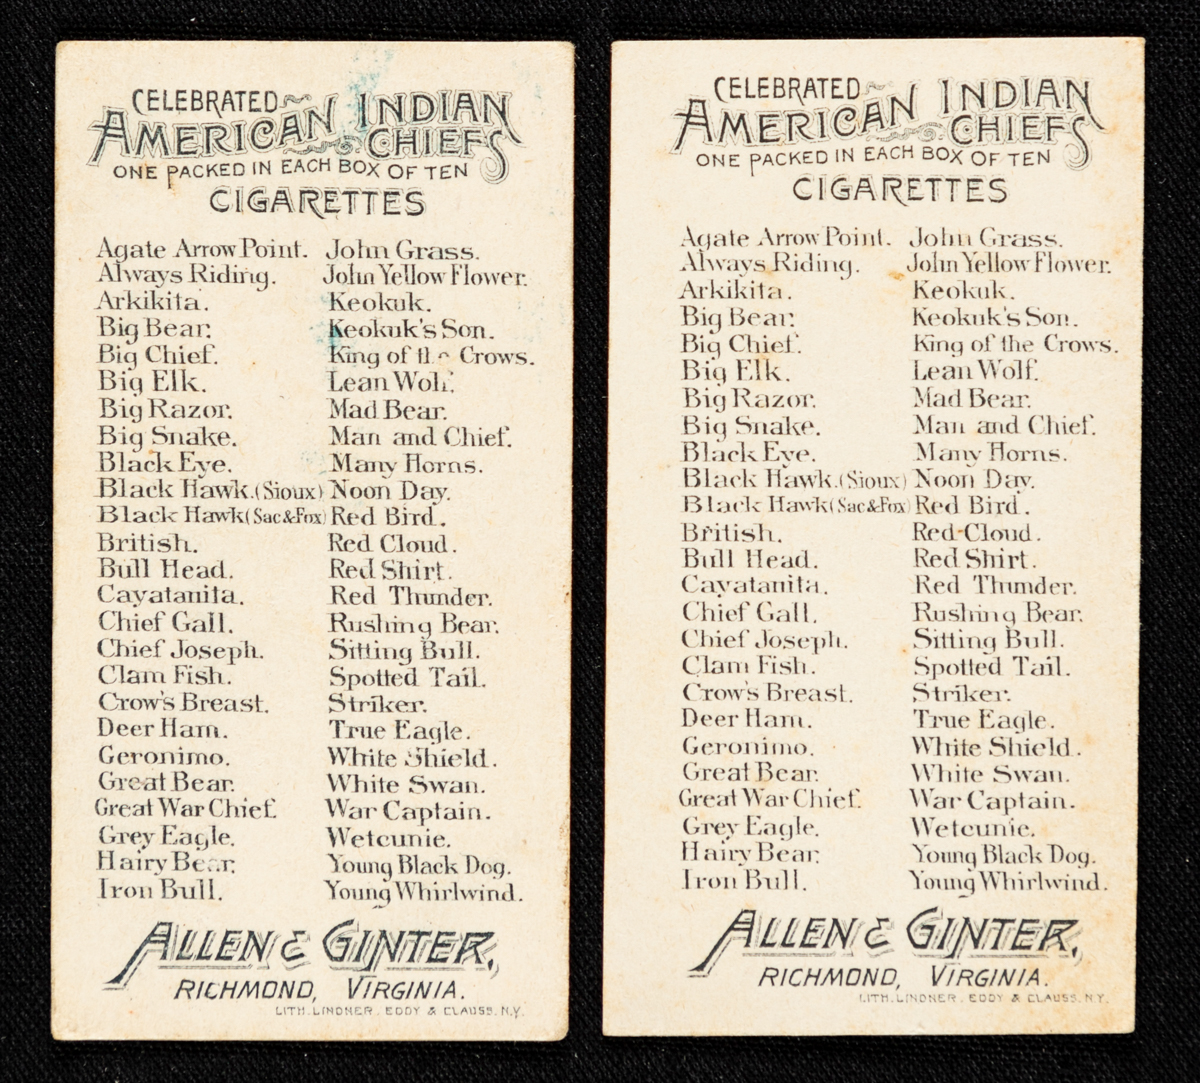 CELEBRATED
AMERICAN INDIAN
CHIEFS
ONE PACKED IN EACH BOX OF TEN
CIGARETTES
Agate Arrow Point. John Grass.
Always Riding. John Yellow Flower.
Arkikita. Keokuk.
Big Bear. Keokuk's Son.
Big Chief. King of the Crows.
Big Elk. Lean Wolf.
Big Razor. Mad Bear.
Big Snake. Man and Chief.
Black Eye. Many Horns.
Black Hawk.(Sioux) Noon Day.
Black Hawk(Sac&Fox) Red Bird.
British. Red Cloud.
Bull Head. Red Shirt.
Cayatanita. Red Thunder.
Chief Gall. Rushing Bear.
Chief Joseph. Sitting Bull.
Clam Fish. Spotted Tail.
Crow's Breast. Striker.
Deer Ham. True Eagle.
Geronimo. White Shield.
Great Bear. White Swan.
Great War Chief. War Captain.
Grey Eagle. Wetcunie.
Hairy Bear. Young Black Dog.
Iron Bull. Young Whirlwind.
ALLEN & GINTER,
RICHMOND, VIRGINIA.
LITH. LINDNER, EDDY & CLAUSS, N.Y.
CELEBRATED
AMERICAN INDIAN
CHIEFS
ONE PACKED IN EACH BOX OF TEN
CIGARETTES
Agate Arrow Point. John Grass.
Always Riding. John Yellow Flower.
Arkikita. Keokuk.
Big Bear. Keokuk's Son.
Big Chief. King of the Crows.
Big Elk. Lean Wolf.
Big Razor. Mad Bear.
Big Snake. Man and Chief.
Black Eye. Many Horns.
Black Hawk.(Sioux) Noon Day.
Black Hawk(Sac&Fox) Red Bird.
British. Red Cloud.
Bull Head. Red Shirt.
Cayatanita. Red Thunder.
Chief Gall. Rushing Bear.
Chief Joseph. Sitting Bull.
Clam Fish. Spotted Tail.
Crow's Breast. Striker.
Deer Ham. True Eagle.
Geronimo. White Shield.
Great Bear. White Swan.
Great War Chief. War Captain.
Grey Eagle. Wetcunie.
Hairy Bear. Young Black Dog.
Iron Bull. Young Whirlwind.
ALLEN & GINTER,
RICHMOND, VIRGINIA.
LITH. LINDNER, EDDY & CLAUSS, N.Y.